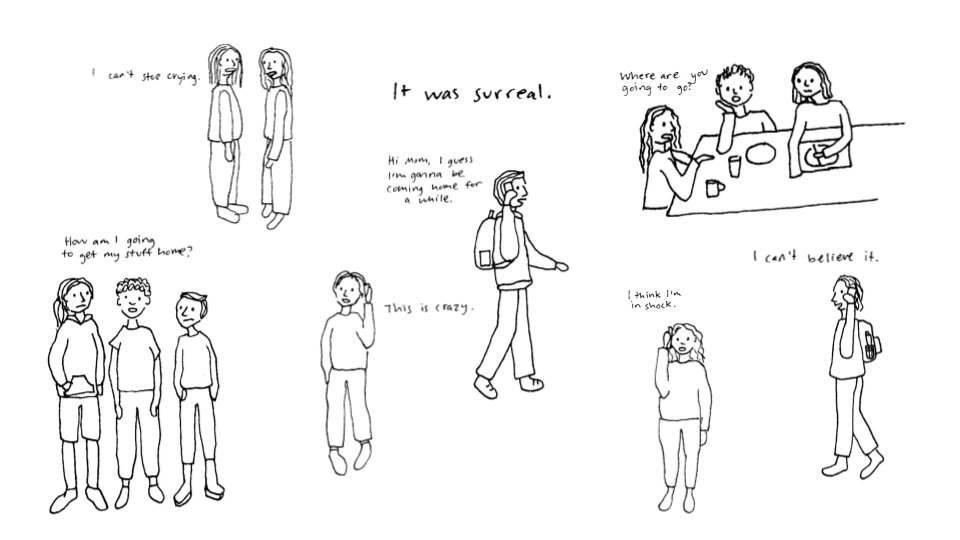 I can't stop crying.
It was surreal.
Where are you
going to go?
Hi Mom, I guess
I'm gonna be
coming home for
a while.
How am I going
to get my stuff home?
This is crazy.
I think I'm
in shock.
I can't believe it.